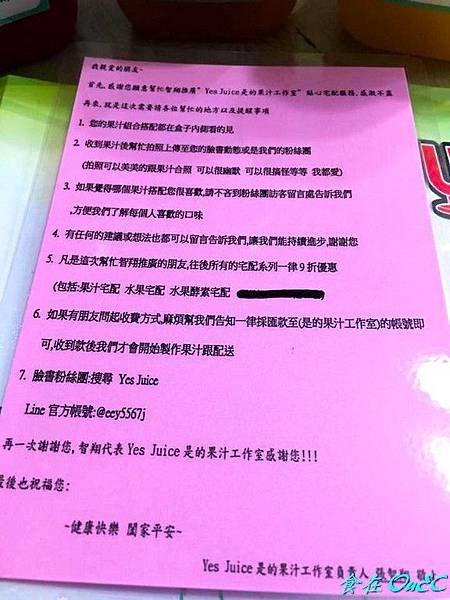 我親愛的朋友~
首先,感謝您願意幫忙智翔推廣"Yes Juice是的果汁工作室"貼心宅配服務,感激不盡
再來,就是這次需要請各位幫忙的地方以及提醒事項
1. 您的果汁組合搭配都在盒子內側看的見
2. 收到果汁後幫忙拍照上傳至您的臉書動態或是我們的粉絲團
(拍照可以美美的跟果汁合照 可以很幽默 可以很搞怪等等 我都愛)
3. 如果覺得哪個果汁搭配您很喜歡,請不吝到粉絲團訪客留言處告訴我們
,方便我們了解每個人喜歡的口味
4. 有任何的建議或想法也都可以留言告訴我們,讓我們能持續進步,謝謝您
5. 凡是這次幫忙智翔推廣的朋友,往後所有的宅配系列一律9折優惠
(包括:果汁宅配 水果宅配 水果酵素宅配
6. 如果有朋友問起收費方式,麻煩幫我們告知一律採匯款至(是的果汁工作室)的帳號即
可,收到款後我們才會開始製作果汁跟配送
7. 臉書粉絲團:搜尋 Yes Juice
Line 官方帳號:@eey5567j
再一次謝謝您,智翔代表Yes Juice是的果汁工作室感謝您!!!
最後也祝福您:
~健康快樂 闔家平安~
Yes Juice是的果汁工作室負責人 張智翔 敬上
食在OnEC